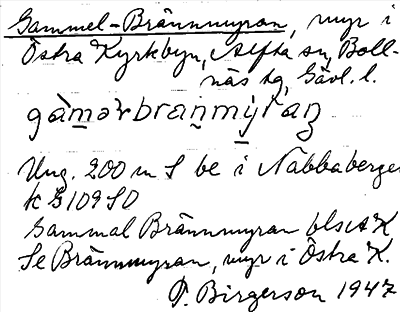 Gammel-Brännmyran, myr i
Östra Kyrkbyn, Alfta sn, Boll-
näs tg, Gävl. l.
Ung. 200 m S be i Nabbaberge
k G 109 SO
Gammal Brännmyran blstK
Se Brännmyran, myr i Östra K.
P. Birgerson 1947